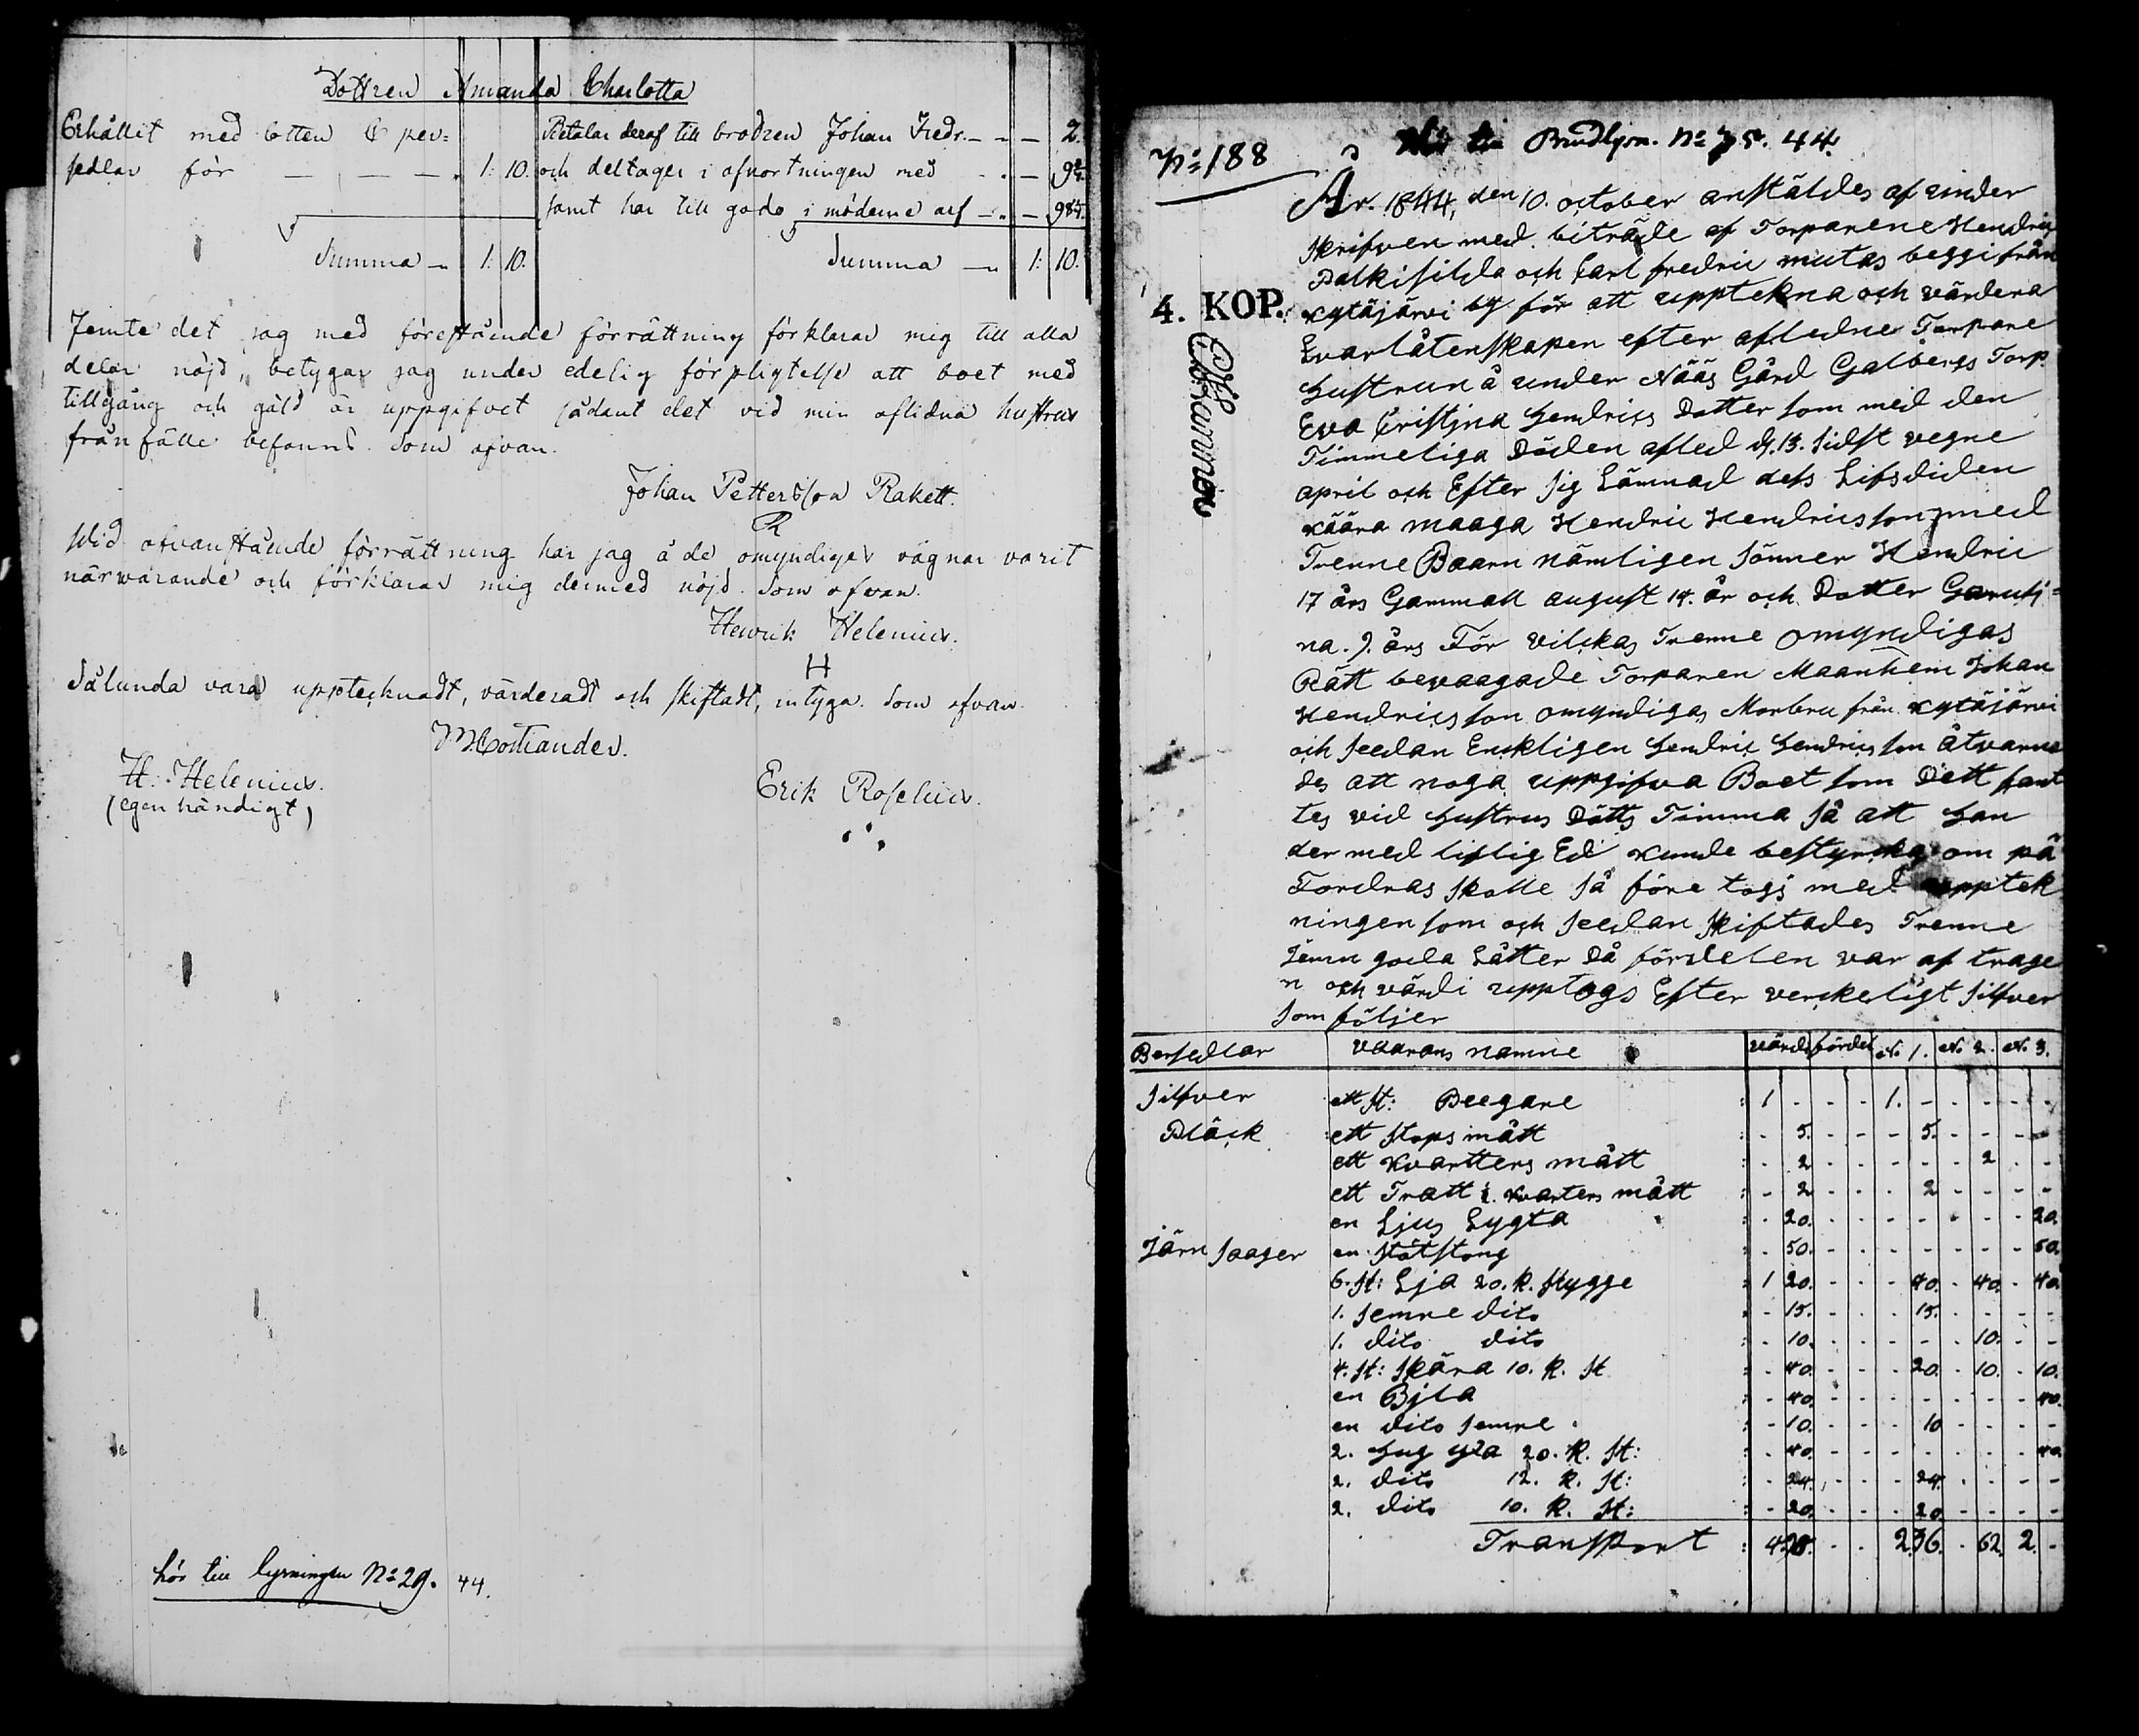 Dottren Amanda Charlotta
Erhållit med lotten C per=
sedlar för — — — 1: 10.
Summa — 1: 10.
Betalar deraf till brodren Johan Fredr. — — 2.
och deltager i afkortningen med — —
samt har till godo i möderne arf — —
Summa — 1: 10.
Jemte det jag med föreståeende förrättning förklarar mig till alla
delar nöjd, betygar jag under edelig förpligtelse att boet med
tillgång och gäld är uppgifvet sådant det vid min aflidna hustrus
frånfälle befanns. Som ofvan.
Johan Pettersson Rakett.
R
Wid ofvanstående förrättning har jag å de omyndiges vägnar varit
närwarande och förklarar mig dermed nöjd. Som ofvan.
Henrik Helenius.
H
Sålunda vara upptecknadt, värderadt och skiftadt, intyga. Som ofvan.
Costiander.
H. Helenius.
(egenhändigt)
Erik Roselius.
hör till lysningen No 29. 44.
No 188
Brudlysn. No 75. 44.
År 1844, den 10. october anstäldes af under
skrifven med biträde af Torparene Hendric
Palkisilda och Carl fredric mutas beggi från
Kytäjärvi by för att upptekna och värdera
qvarlåtenskapen efter afledne Torpare
hustrun å under Nääs Gård Galbergs Torp.
Eva Cristina Hendrics Dotter som med den
Timmeliga Döden afled d. 13. sidst vegne
april och Efter sig Lämnad dess Lifsdiden
Käära maaga Hendric Hendricsson med
Trenne Baarn nämligen sönner Hendric
17 års Gammall august 14. år och Dotter Gerusti=
na. 9. års För vilckas Trenne omyndigas
Rätt bevaagade Torparen Maanhem Johan
Hendricsson omyndigas Morbru från Kytäjärvi
och seedan Enckligen Hendric Hendricsson åtvarna
des att noga uppgifva Boet som Dett fant
tes vid hustrus Dötts Timma så att han
der med liflig Ed kunde bestyrcka om på
Fordras skolle så före togs med upptek
ningen som och seedan skiftades Trenne
Jämn goda Låtter Då fördelen var af trage
n och värdi upptogs Efter verckeligt silfver
som följer
4. KOP.
Persedlar Vaarans namne värdi fördel No 1. No 2. No 3.
Silfver ett st: Beegare : 1 - - - 1. - - - - -
Bläck ett stops mått : - 5. - - - 5. - - - -
ett Kvartters mått : - 2 - - - - - 2 - -
ett Tratt i. Kvarters mått : - 2 - - - 2 - - - -
en Ljus Lygta : - 20. - - - - - - - 20.
Järn saager en stötstong : - 50. - - - - - - - 50.
6. st: Lja 20. k. stygge : 1 20. - - - 40. - 40. - 40.
1. semre dito : - 15. - - - 15. - - - -
1. dito dito : - 10. - - - - - 10. - -
4. st: skära 10. k. st : - 40. - - - 20. - 10. - 10.
en Bjla : - 40. - - - - - - - 40.
en dito semre : - 10. - - - 10 - - - -
2. hug yxa 20. k. st: : - 40. - - - - - - - 40.
2. dito 12. k. st: : - 24. - - - 24. - - - -
2. dito 10. k. st: : - 20. - - - 20. - - - -
Transport : 4 98. - - 2. 36. - 62. 2. -